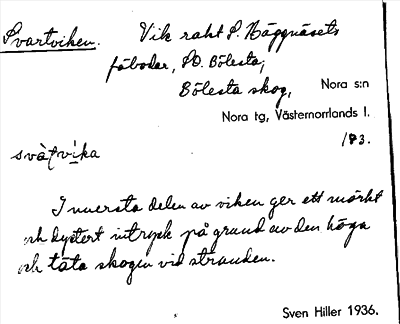 Svartviken. Vik rakt S. Häggnäsets
fäbodar, SO. Bölesta,
Bölesta skog, Nora s:n
Nora tg, Västernorrlands l.
183.
svàțvìka
Innersta delen av viken ger ett mörkt
och dystert intryck på grund av den höga
och täta skogen vid stranden.
Sven Hiller 1936.